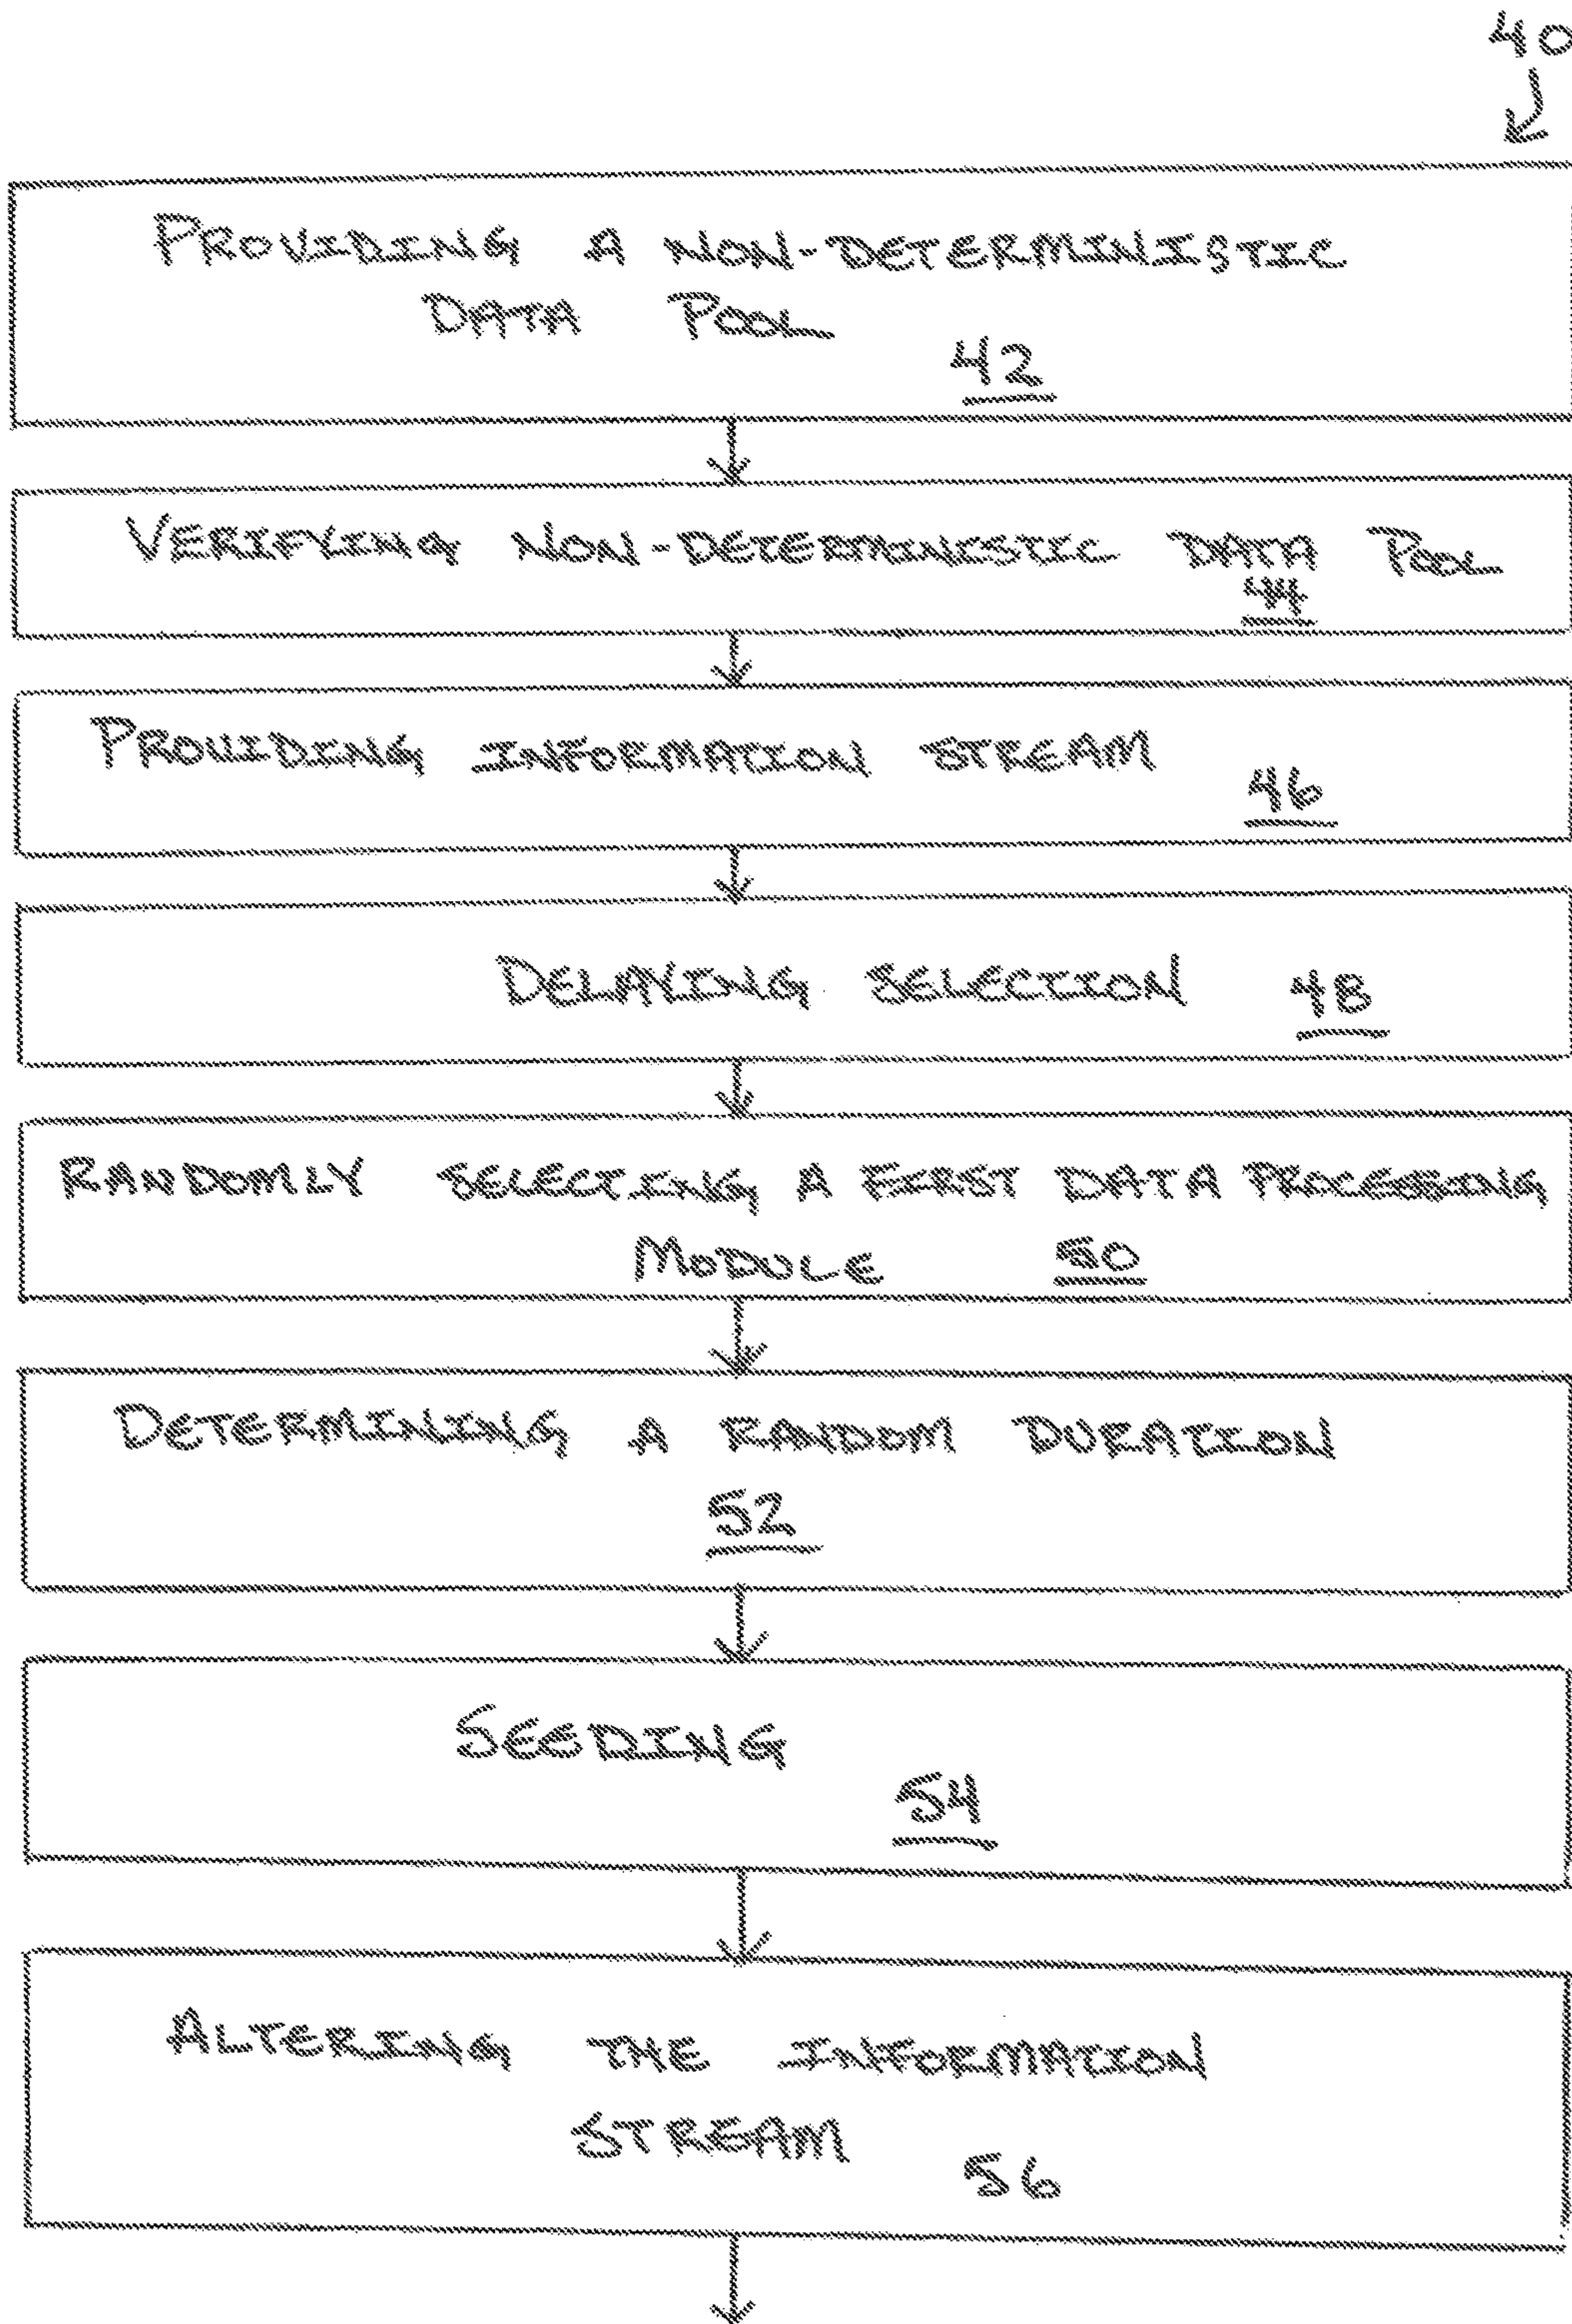 40
PROVIDING A NON-DETERMINISTIC
DATA POOL
42
VERIFYING NON-DETERMINISTIC DATA POOL
44
PROVIDING INFORMATION STREAM
46
DELAYING SELECTION 48
RANDOMLY SELECTING A FIRST DATA PROCESSING
MODULE 50
DETERMINING A RANDOM DURATION
52
SEEDING
54
ALTERING THE INFORMATION
STREAM
56